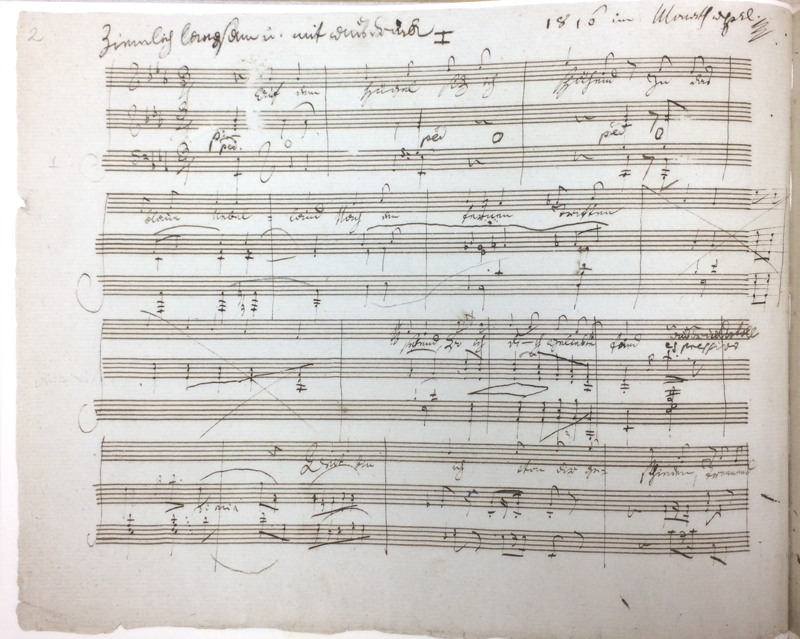 2
Ziemlich langsam u. mit ausdruck
1816 im Monath april
Auf dem Hügel sitz ich spähend In das
ped ped ped
blaue Nebel = land Nach den fernen Triften
sehend, wo ich dich geliebte fand
espressivo
Weit bin ich von dir geschieden, trennend